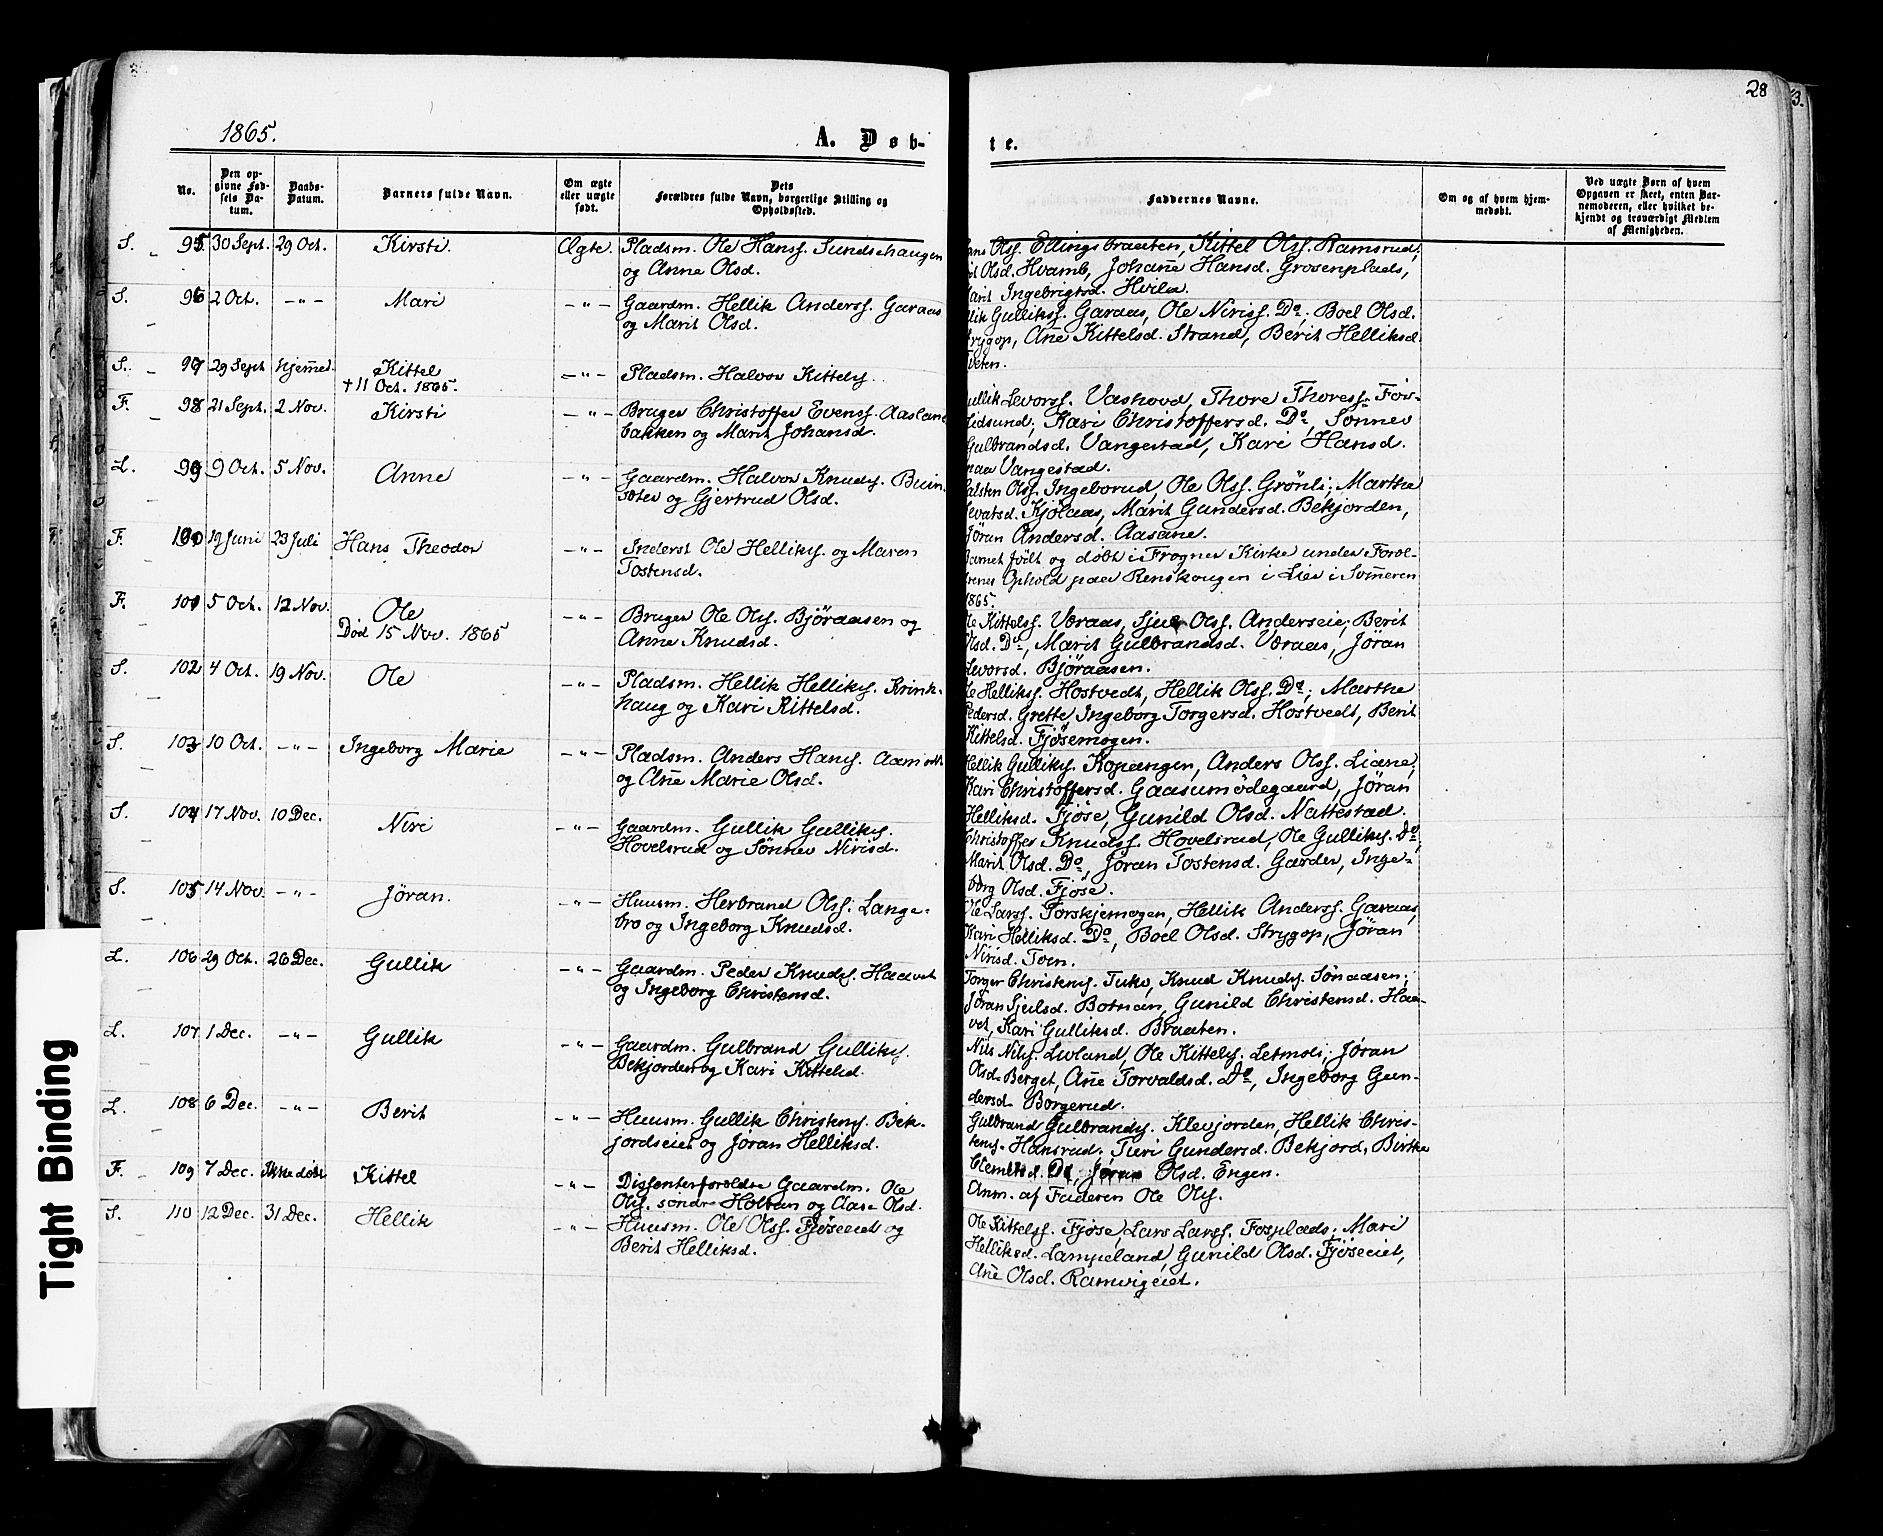 28
3.
1865.
A. Døb-
te.
No.
Den op-
givne Fød-
sels Da-
tum.
Daabs-
Datum.
Barnets fulde Navn.
Om ægte
eller uægte
født.
Dets
Forældres fulde Navn, borgerlige Stilling og
Opholdssted.
Faddernes Navne.
Om og af hvem hjem-
medøbt.
Ved uægte Børn af hvem
Opgaven er skeet, enten Bar-
nemoderen, eller hvilket be-
kjendt og troværdigt Medlem
af Menigheden.
S. 95 30 Sept. 29 Oct. Kirsti. Ægte. Pladsm. Ole Hanss. Sundsehaugen
og Anne Olsd.
Olss. Ellingsbraaten, Kittel Olss. Ramsrud;
Olsd. Hvamb, Johane Hansd. Grosenplads,
Marit Ingebrigtsd. Hvila.
S. 96 2 Oct. -"- Mari -"- Gaardm. Hellik Anderss. Garaas
og Marit Olsd.
Gullikss. Garaas, Ole Niriss. Do; Boel Olsd.
Strygop, Ane Kittelsd. Strand, Berit Helliksd.
S. 97 29 Sept hjemme. Kittel
† 11 Oct. 1865.
-"- Pladsm. Halvor Kittels.
F. 98 21 Sept. 2 Nov. Kirsti -"- Bruger Christoffer Evenss. Aaslane
bakken og Marit Johansd.
Gullik Levorss. Vashovd, Thore Thoress. Fos-
lidsund; Kari Christoffersd. Do, Sønnev
Gulbrandsd. Vangestad, Kari Hansd.
Vangestad.
L. 99 9 Oct. 5 Nov. Anne -"- Gaardm. Halvor Knuds.
og Gjertrud Olsd.
Olss. Ingeborud, Ole Olss. Grønli; Marthe
Kjølaas, Marit Gundersd. Bekjorden,
Jøran Andersd. Aasane.
F. 100 19 Juni 23 Juli Hans Theodor -"- Inderst Ole Helliks. og Maren
Tostensd.
Barnet født og døbt i Frogner Kirke under Foræl-
drenes Ophold paa Renskougen i Lier i Sommeren
1865.
F. 101 5 Oct. 12 Nov. Ole
Død 15 Nov. 1865
-"- Bruger Ole Ols. Bjøraasen og
Anne Knudsd.
Ole Kittelss. Væraas, Sjul Olss. Anderseie; Berit
Olsd. Do, Marit Gulbrandsd. Væraas, Jøran
Levorsd. Bjøraasen.
S. 102 4 Oct. 19 Nov. Ole -"- Pladsm. Hellik Helliks. Krink-
haug og Kari Kittelsd.
Ole Hellikss. Hostvedt, Hellik Olss. Do; Marthe
Pedersd. Grette, Ingeborg Torgersd. Hostvedt, Berit
Kittelsd. Fjøsemogen.
S. 103 10 Oct. -"- Ingeborg Marie -"- Pladsm. Anders Hans. Aamodt
og Ane Marie Olsd.
Hellik Gulliks. Kopangen, Anders Olss. Liane,
Kari Christoffersd. Gaasumødegaard, Jøran
Helliksd. Fjøse, Gunild Olsd. Nattestad.
S. 104 17 Nov. 10 Dec. Niri -"- Gaardm. Gullik Gulliks.
Hovelsrud og Sønnev Nirisd.
Christoffer Knudss. Hovelsrud, Ole Gulliks. Do,
Marit Olsd. Do, Jøran Tostensd. Garder, Inge-
borg Olsd. Fjøse.
S. 105 14 Nov. -"- Jøran. -"- Huusm. Herbrand Olss. Lange-
bro og Ingeborg Knudsd.
Ole Larss. Torskjemogen, Hellik Anderss. Garaas,
Kari Helliksd. Do, Boel Olsd. Strygop, Jøran
Nirisd. Toen.
L. 106 29 Oct. 26 Dec. Gullik -"- Gaardm. Peder Knuds. Haavet
og Ingeborg Christensd.
Torger Christens. Tuko, Knud Knuds. Sønaasen;
Jøran Sjulsd. Botnan, Gunild Christensd. Haa-
vet, Kari Gulliksd. Braaten.
L. 107 1 Dec. -"- Gullik -"- Gaardm. Gulbrand Gulliks.
Bekjorden og Kari Kittelsd.
Nils Nils. Lurland, Ole Kittels. Letmoli; Jøran
Olsd. Berget, Ane Torvaldsd. Do, Ingeborg Gun-
dersd. Borgerud.
L. 108 6 Dec. -"- Berit -"- Huusm. Gullik Christens. Bek-
jordseiet og Jøran Helliksd.
Gulbrand Gulbrands. Klevjorden, Hellik Chris-
tens. Hansrud; Tieri Gundersd. Bekjord, Birthe
Do, Jøran Olsd. Engen.
F. 109 7 Dec. Ikke døbt Kittel -"- Dissenterforældre Gaardm. Ole
Ols. søndre Holtan og Aase Olsd.
Anm. af Faderen Ole Ols.
S. 110 12 Dec. 31 Dec. Hellik -"- Huusm. Ole Olss. Fjøseeiet og
Berit Helliksd.
Ole Kittelss. Fjøse, Lars Larss. Fosplads; Mari
Helliksd. Lampeland, Gunild Olsd. Fjøseeiet,
Ane Olsd. Ramvigeiet.
Tight Binding